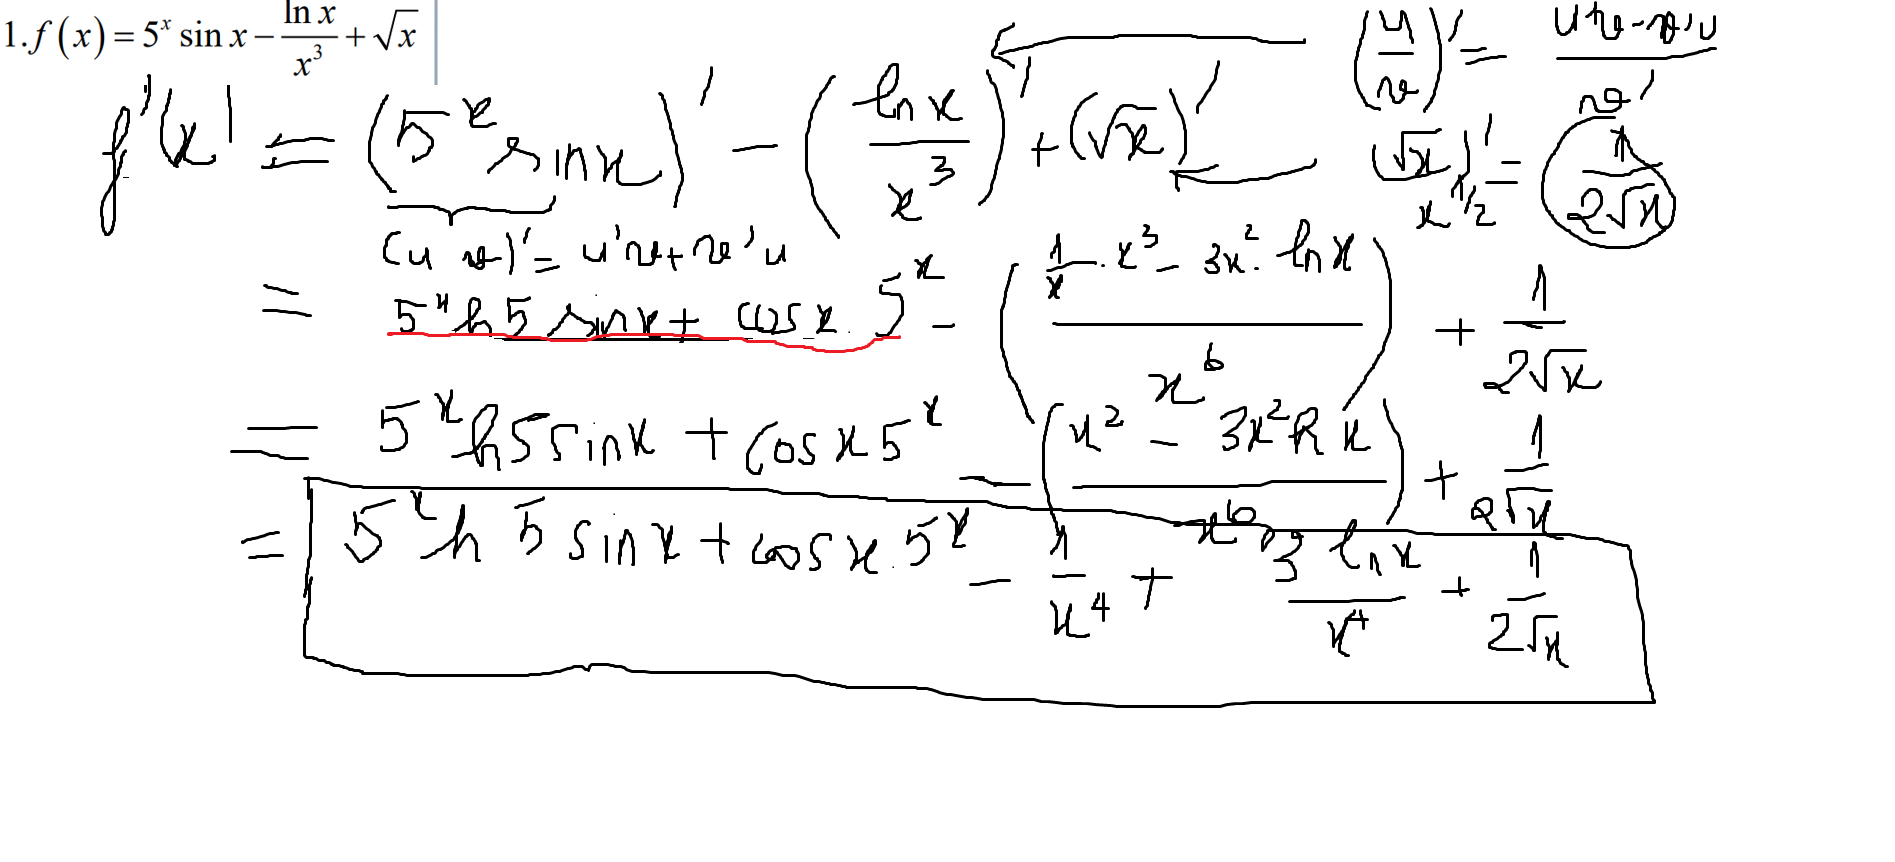 1. f(x) = 5^x sin x − ln x / x^3 + √x
(u/v)' = (u'v − v'u) / v'
f'(x) = (5^x sin x)' − (ln x / x^3)' + (√x)'
(√x)' = 1 / 2√x
x^1/2
(u v)' = u'v + v'u
= 5^x ln 5 sin x + cos x . 5^x − (1/x . x^3 − 3x^2 . ln x / x^6) + 1 / 2√x
= 5^x ln 5 sin x + cos x 5^x − (x^2 − 3x^2 ln x / x^6) + 1 / 2√x
= 5^x ln 5 sin x + cos x . 5^x − 1 / x^4 + 3 ln x / x^4 + 1 / 2√x